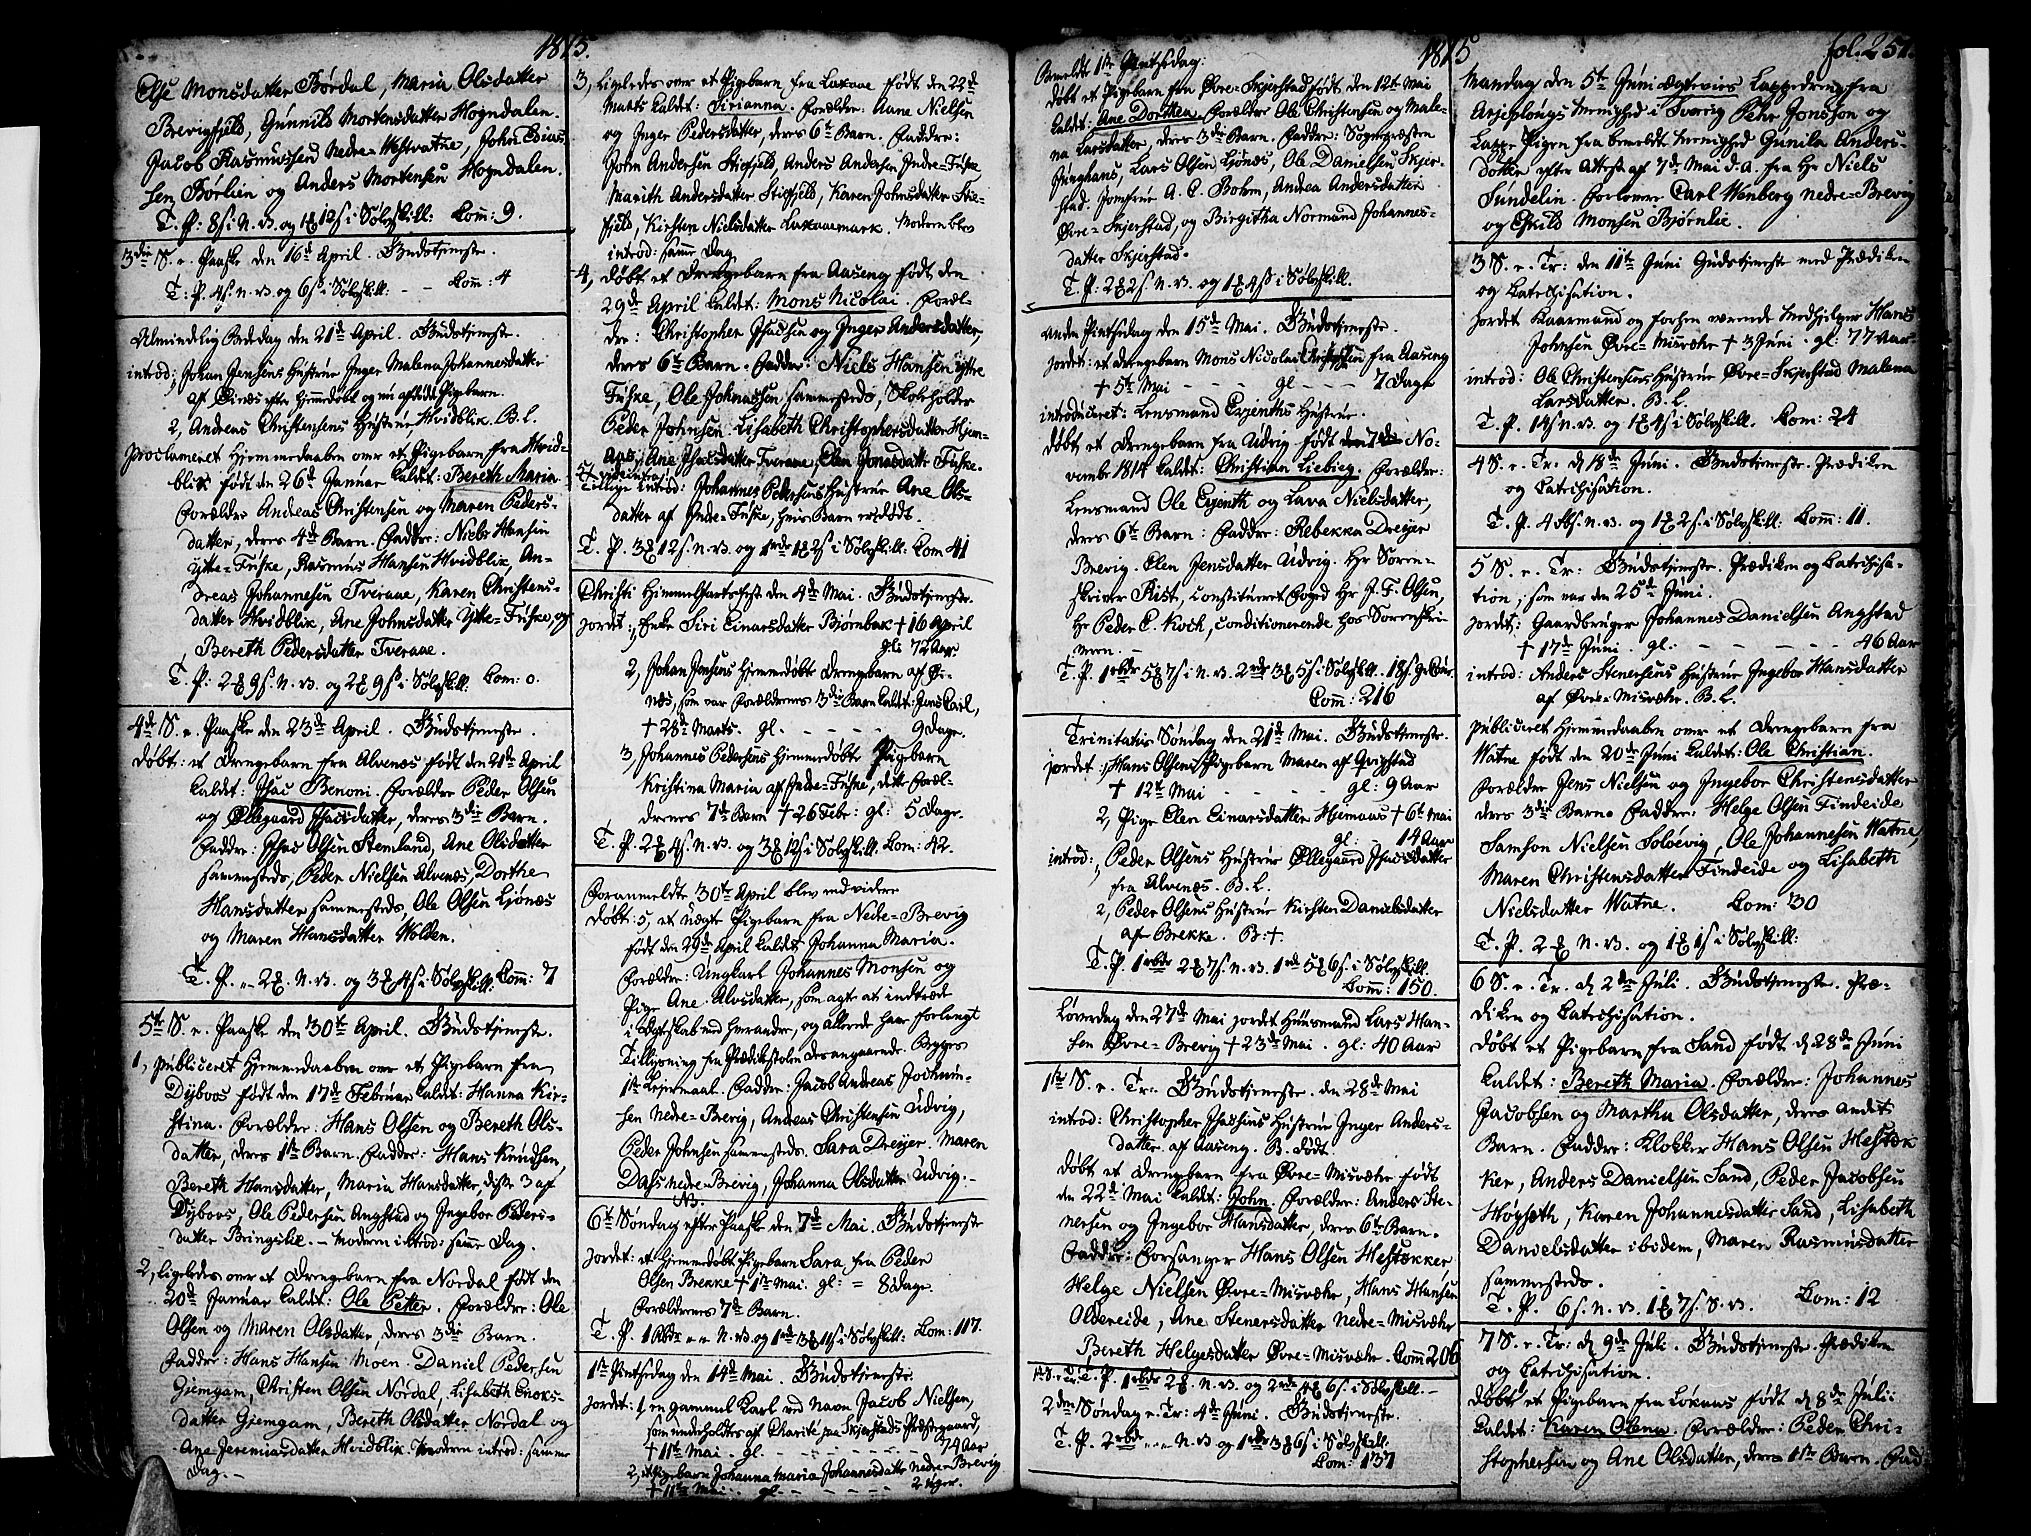 1815.
Else Monsdatter Børdal, Maria Olsdatter
Brevigfjeld, Gunnild Mortensdatter Hogndalen.
Jacob Rasmussen Nedre-Westvatne, John Esias
sen Børlien og Anders Mortensen Hogndalen.
T. P. 8 s: N. V. og 1 # 12 s i Sølvskill: Com: 9.
3die S. e. Paaske den 16de April. Gudstjeneste.
T: P. 4 s. N. V. og 6 s i Sølvskill: - - Com: 4
Almindelig Bededag den 21de April. Gudstjeneste.
introd: Johan Jensens Hustrue Inger Malena Johannesdatter
af Øinæs efter hjemmedøbt og nu afdøde Pigebarn.
2, Andreas Christensens Hustrue Hvidblik. B. L.
Proclameret Hjemmedaaben over et Pigebarn fra Hvid-
blik født den 26de Januar kaldet: Bereth Maria
Forældre Andreas Christensen og Maren Peders-
datter, deres 4de Barn. Faddere: Niels Hansen
Ytte-Fuske, Rasmus Hansen Hvidblik, An-
dreas Johannesen Tveraae, Karen Christens-
datter Hvidblik, Ane Johnsdatter Ytte-Fuske og
Bereth Pedersdatter Tveraae.
T. P: 2 # 9 s. N. V. og 2 # 9 s i Sølvskill: Com: 0.
4de S. e. Paaske den 23de April. Gudstjeneste.
døbt: et Drengebarn fra Alvenæs født den 21de April
kaldet: Isac Benoni. Forældre Peder Olsen
og Ellegaard Isacsdatter, deres 3die Barn.
Faddre: Isac Olsen Stemland, Ane Olsdatter
sammesteds, Peder Nielsen Alvenæs, Dorthe
Hansdatter sammesteds, Ole Olsen Ljønæs
og Maren Hansdatter Wolden.
T. P. " - 2 #. N. V. og 3 # 4 s i Sølvskill: Com: 7
5te S. e. Paaske den 30te April. Gudstjeneste.
1, publiceret Hjemmedaaben over et Pigebarn fra
Dybvos født den 17de Februar kaldet: Hanna Kir-
stina. Forældre: Hans Olsen og Bereth Ols-
datter, deres 1ste Barn. Faddre: Hans Knudsen,
Bereth Hansdatter, Maria Hansdatter, disse 3 af
Dybvos, Ole Pedersen Angstad og Ingebor Peders-
datter Bringslie. - Moderen introd: samme Dag.
2, Ligeledes over et Drengebarn fra Nordal født den
20de Januar kaldet: Ole Petter. Forældre: Ole
Olsen og Maren Olsdatter, deres 3die Barn.
Faddre: Hans Hansen Moen. Daniel Pedersen
Gjemgam, Christen Olsen Nordal, Lisabeth Enoks-
datter Gjemgam, Bereth Olsdatter Nordal og
Ane Jeremiasdatter Hvidblik. Moderen introd: samme
Dag. -
3, Ligeledes over et Pigebarn fra Laxaae født den 22de
Marts kaldet: Sirianna. Forældre: Aane Nielsen
og Inger Pedersdatter, deres 6te Barn. Faddere:
John Andersen Stiefjeld, Anders Andersen Indre-Fuske,
Marith Andersdatter Stiefjeld, Karen Johnsdatter Stie-
fjeld, Kirsten Nielsdatter Laxaaemark. Moderen blev
introd: samme Dag.
4, døbt et Drengebarn fra Aaseng født den
29de April kaldet: Mons Nicolai. Foræl-
dre: Christopher Isachsen og Inger Andersdatter,
deres 6te Barn. Faddre: Niels Hansen Ytre
Fuske, Ole Johnsen sammesteds, Skoleholder
Peder Johnsen. Lisabeth Christophersdatter Hjem-
aas, Ane Isacsdatter Tveraae, Elen Jonasdatter Fuske.
Tillige introd: Johannes Pedersens Hustrue Ane Ols-
datter af Indre-Fuske, hvis Barn er død.
T. P. 3 # 12 s. N. V. og 1 rdr 1 # 2 s i Sølvskill: Com 41
Christi Himmelfartsfest den 4de Mai. Gudstjeneste.
Jordet: 1, Enke Siri Einarsdatter Bjørnbak † 16 April
gl: 72 Aar.
2, Johan Jensens hjemmedøbte Drengebarn af Øi-
næs, som var Forældrenes 3die Barn kaldet: Jens Carl,
† 28de Marts. gl. - - - - - 9 dage.
3, Johannes Pedersens hjemmedøbte Pigebarn
Kirstina Maria af Indre-Fuske, dette Foræl-
drenes 7de Barn † 26 Febr: gl: 5 dage.
T. P. 2 # 4 s. N. V. og 3 # 12 s i Sølvskill: Com: 42.
Foranmeldte 30te April blev endvidere
døbt: 5, et uægte Pigebarn fra Nedre-Brevig
født den 29de April kaldet Johanna Maria.
Forældre: Ungkarl Johannes Monsen og
Pige Ane Alvsdatter, som agte at indtræde
i Ægteskab med hverandre, og allerede haar forlangt
Tillysning fra Prædikestolen desangaaende. Begges
1ste Leiermaal. Faddre: Jacob Andreas Jochum-
sen Nedre-Brevig, Andreas Christensen Udvig,
Peder Johnsen sammesteds. Sara Dreyer. Maren
Dass nedre-Brevig, Johanna Olsdatter Udvig. -
NB.
6te Søndag efter Paaske den 7de Mai. Gudstjeneste
Jordet: et hjemmedøbt Pigebarn Sara fra Peder
Olsen Brekke † 1ste Mai. gl: = 8 dage.
Forældrenes 7de Barn.
T. P. 1 Rbdr " " N. V. og 1 rdr 3 # 11 s i Sølvskill: Com: 117.
1ste Pintsedag den 14de Mai. Gudstjeneste.
Jordet: 1, en gammel Karl ved Navn Jacob Nielsen,
som underholdtes af Charite paa Skjerstads Præstegaard,
† 11te Mai gl. - - - - 74 Aar
2, et Pigebarn Johanna Maria Johannesdatter nedre-Brevig
† 11te Mai.. gl - - - 2 Uger.
1815
fol. 257.
Anmeldte 1ste Pintsedag:
døbt et Pigebarn fra Øvre-Skjerstad født den 12te Mai
kaldet: Ane Dorthea. Forældre Ole Christensen og Male-
na Larsdatter, deres 3die Barn. Faddre: Søren Græsten
Junghans, Lars Olsen Ljønæs, Ole Danielsen Skjer-
stad. Jomfrue A. C. Bohm, Andrea Andersdatter
Øvre-Skjerstad, og Birgitha Normand Johannes-
datter Skjerstad.
T. P. 2 # 2 s. N. V. og 1 # 4 s i Sølvskill.
Anden Pintsedag den 15de Mai. Gudstjeneste.
Jordet: et Drengebarn Mons Nicolai Christophersen fra Aaseng
† 5te Mai - - - gl - - - 7 dage
introduceret: Lensmand Erzeniths Hustrue.
døbt et Drengebarn fra Udvig født den 7de No-
vember 1814 kaldet: Christian Liebieg. Forældre:
Lensmand Ole Erzenith og Lava Nielsdatter,
deres 6te Barn: Faddre: Rebekka Dreyer
Brevig. Elen Jensdatter Udvig. Hr Soren-
skriver Rist, constitueret Foged Hr J. F. Olsen,
Hr Peder C. Koch, conditionerende hos Sorenskri-
veren. -
T. P. 1 rbdr 5 # 7 s. N. V. 2 rdr 3 # 5 s i Sølvskill.. 18 s. Gr. Cour.
Com: 216
Trinitatis Søndag den 21de Mai. Gudstjeneste.
jordet: 1, Hans Olsens Pigebarn Maren af Qvigstad
† 12te Mai - - - - gl: 9 Aar
2, Pige Elen Einarsdatter Hjemaas † 6te Mai
gl: 14 Aar
introd: 1, Peder Olsens Hustrue Ellegaard Isacsdatter
fra Alvenæs. B. L.
2, Peder Olsens Hustrue Kirsten Danielsdatter
af Brekke. B: †.
T. P. 1 rbdr 2 # 7 s. N. V. 1 rd 5 # 6 s i Sølvskill.
Com: 150.
Løverdag den 27de Mai jordet Huusmand Lars Han-
sen Øvre-Brevig † 23de Mai. gl: 40 Aar
1ste S. e. Tr: Gudstjeneste. den 28de Mai
introd: Christopher Isachsens Hustrue Inger Anders-
datter af Aaseng. B. dødt.
døbt et Drengebarn fra Øvre-Misvæhr født
den 22de Mai kaldet: John. Forældre: Anders Ste-
nersen og Ingebor Hansdatter, deres 6te Barn.
Faddre: Forsanger Hans Olsen Hestøkker
Helge Nielsen Øvre-Misvæhr, Hans Hansen
Oldereide, Ane Stenersdatter Nedre-Misvæhr
Bereth Helgesdatter Øvre-Misvæhr. Com 206
T. P. 1 rbdr 2 #. N. V. og 2 rdr 4 # 6 s. i Sølvskill. -
2den Søndag e. Tr: 4de Juni. Gudstjeneste.
T. P. 2 rbdr " " " N. V. og 1 rdr 3 # 6 s i Sølvskill.
Com: 137
Mandag den 5te Juni ægtevies Lappedreng fra
Arjeplougs Menighed i Sverrig Pehr Jonsson og
Lappe-Pigen fra bemeldte Menighed Gunila Anders-
dotter efter Attest af 7de Mai d. A. fra Hr Niels
Sundelin. Forlovere Carl Wenberg nedre-Brevig
og Eskild Monsen Bjørnlie.
3 S. e. Tr: den 11te Juni Gudstjeneste med Prædiken
og Catechisation.
Jordet Kaarmand og forhen værende Medhjelper Hans
Johnsen Øvre-Misvæhr † 3 Juni. gl: 77 Aar
introd: Ole Christensens Hustrue Øvre-Skjerstad Malena
Larsdatter. B. L.
T. P. 14 s. N. V. og 1 # 4 s i Sølvskill. Com: 24
4 S. e. Tr. d 18de Juni. Gudstjeneste. Prædiken
og Catechisation.
T. P. 4 s. N. V. og 1 # 2 s i Sølvskill: Com: 11.
5 S. e. Tr: Gudstjeneste. Prædiken og Catechisa-
tion, som var den 25de Juni.
Jordet: Gaardbruger Johannes Danielsen Angstad
† 17de Juni. gl: - - - - - 46 Aar
introd: Anders Stenersens Hustrue Ingebor Hansdatter
af Øvre-Misvæhr. B. L.
publiceret Hjemmedaaben over et Drengebarn fra
Watne født den 20de Juni kaldet: Ole Christian.
Forældre Jens Nielsen og Ingebor Christensdatter
deres 3die Barn. Faddre: Helge Olsen Findeide
Samson Nielsen Soløevig, Ole Johannesen Watne,
Maren Christensdatter Findeide og Lisabeth
Nielsdatter Watne. Com: 30
T. P. 2 # N. V. og 1 # 1 s i Sølvskill:
6 S. e. Tr. d 2de Juli. Gudstjeneste. Præ-
diken og Catechisation.
døbt et Pigebarn fra Sand født d 28de Juni
kaldet: Bereth Maria. Forældre: Johannes
Jacobsen og Martha Olsdatter, deres andet
Barn. Faddre: Klokker Hans Olsen Hestøk
ker, Anders Danielsen Sand, Peder Jacobsen
Høgsæth, Karen Johannesdatter Sand, Lisabeth
Danielsdatter ibidem, Maren Rasmusdatter
sammesteds.
T. P. 6 s. N. V. 1 # 7 s. S. V. Com: 12
7 S. e. Tr. d 9de Juli. Gudstjeneste. Prædiken
og Catechisation.
døbt et Pigebarn fra Løkaas født d 8de Juli:
kaldet: Karen Olena. Forældre: Peder Chri-
stophersen og Ane Olsdatter, deres 1ste Barn. Fad